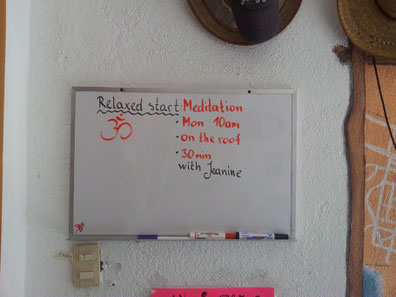 Relaxed start: Meditation
ॐ
• Mon 10am
• on the roof
• 30min
with Jeanine